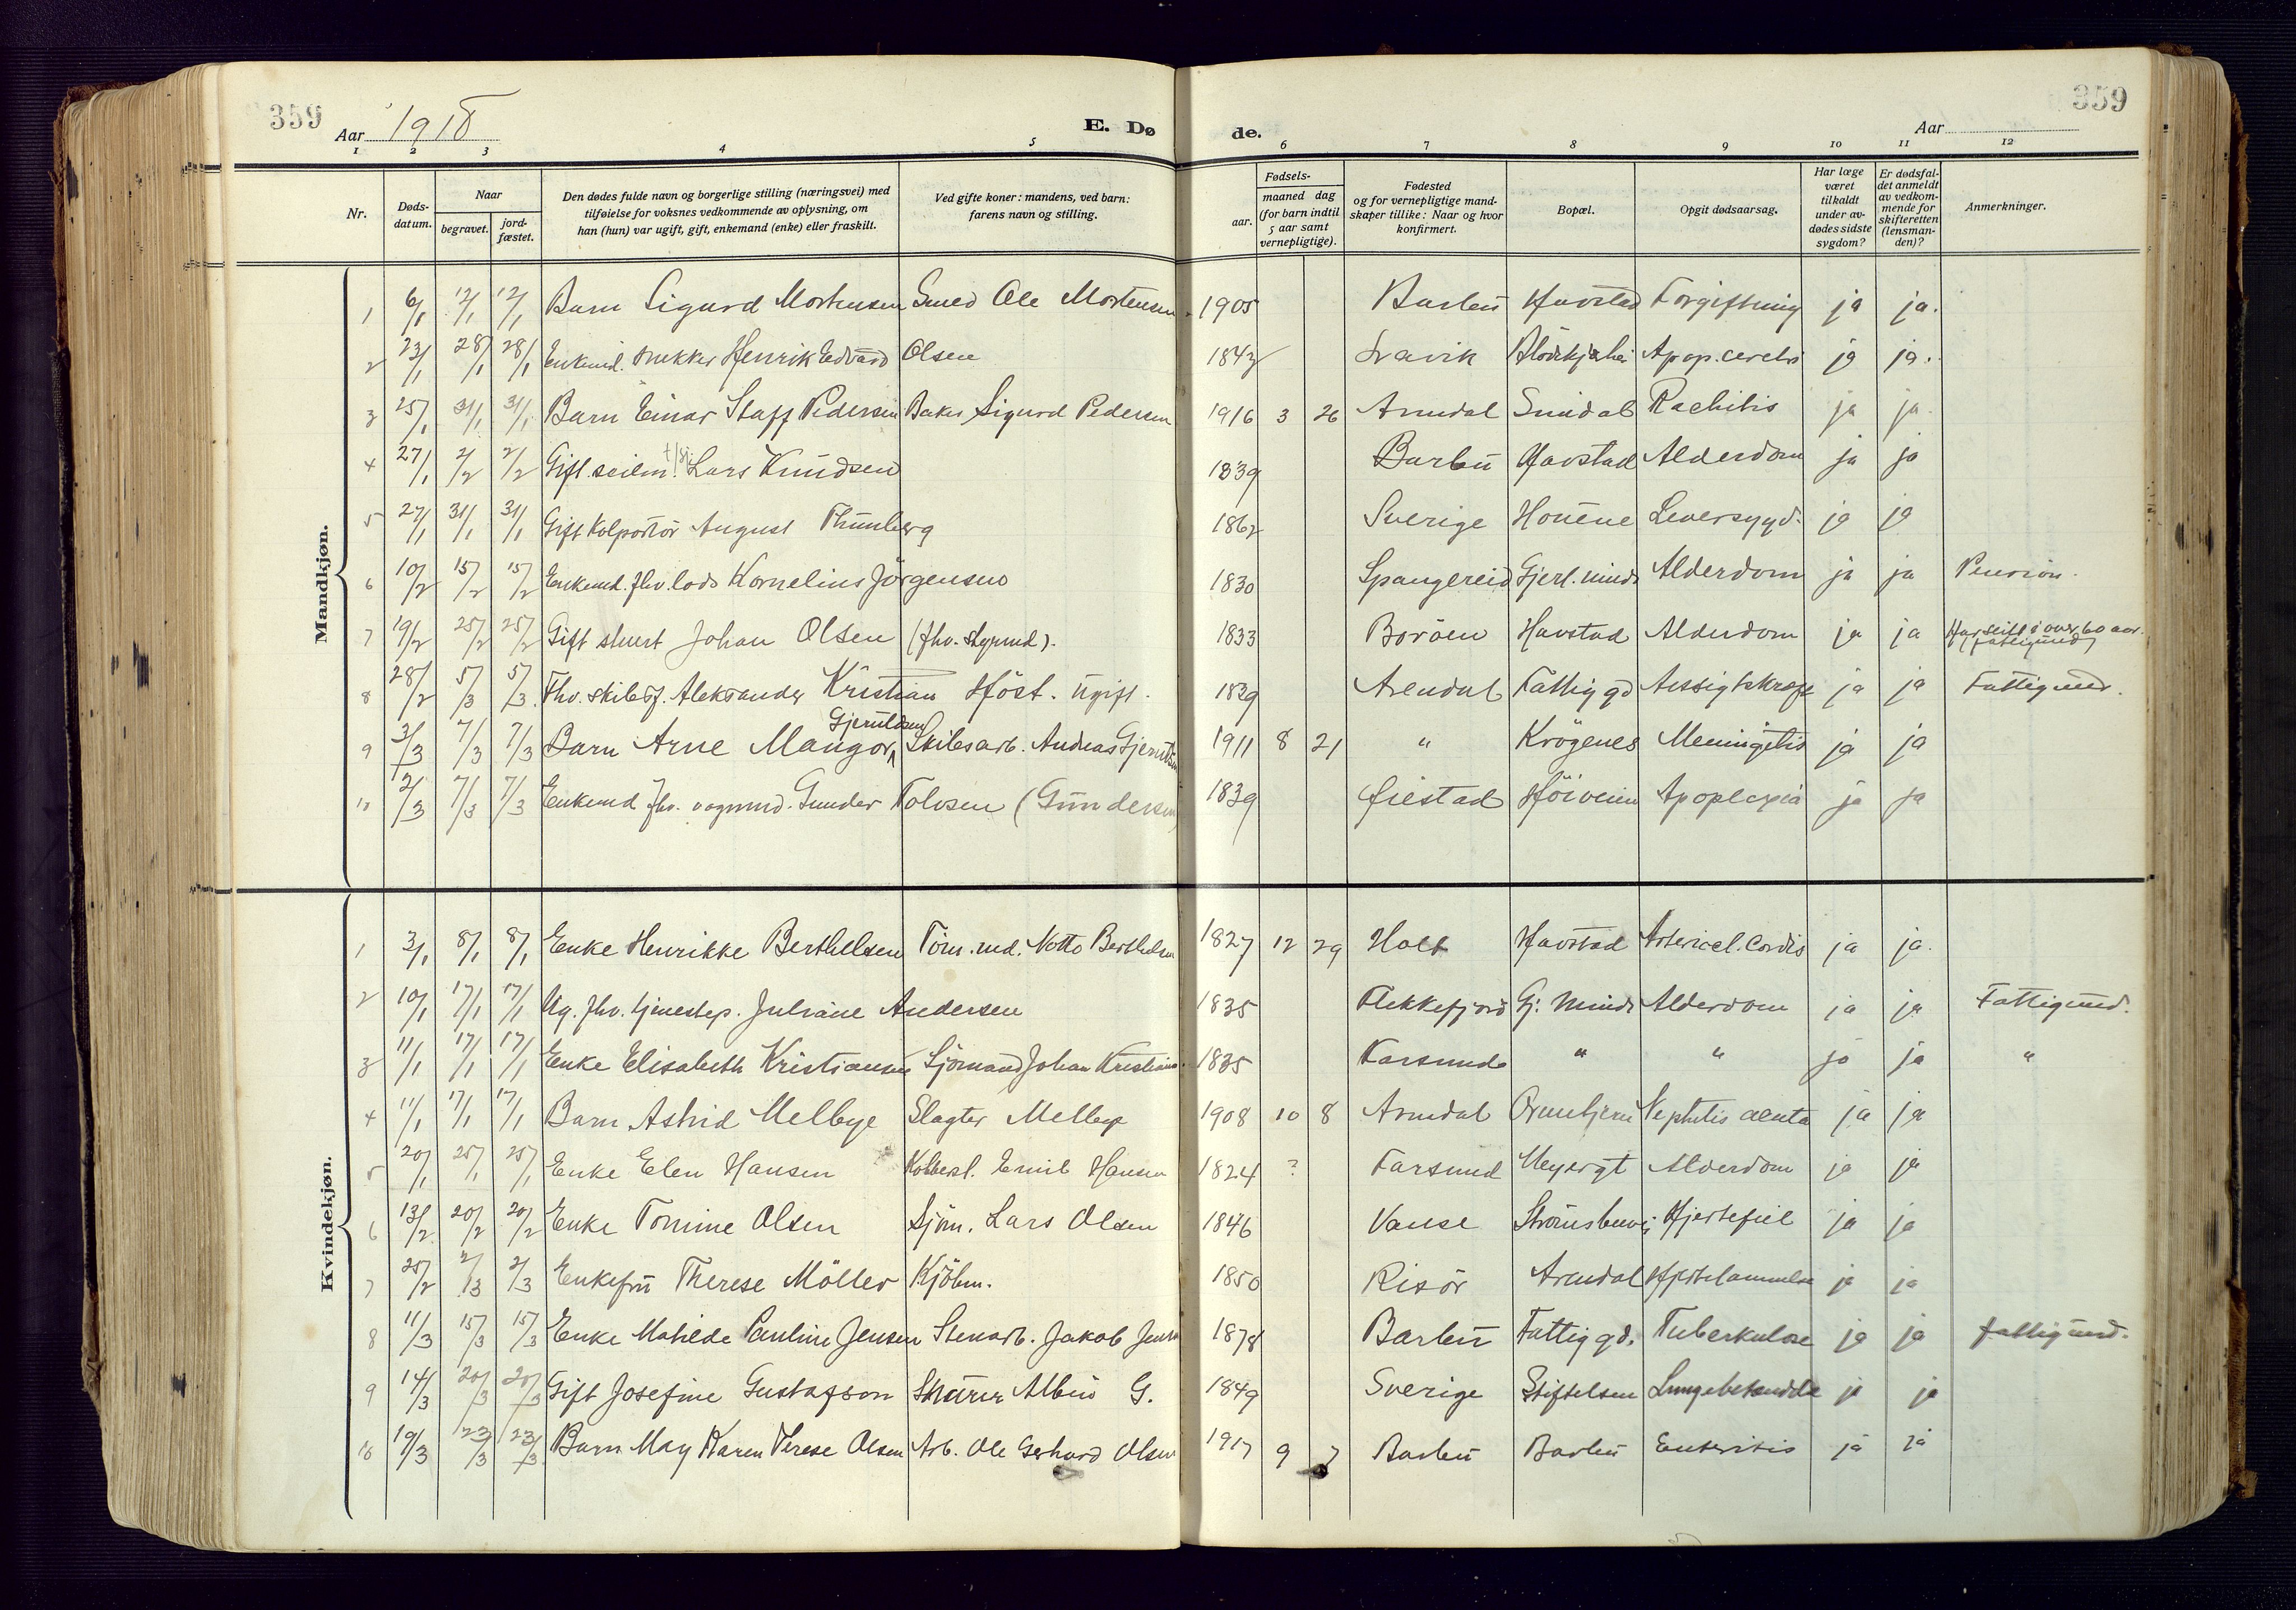 359
Aar 1918
E. Dø
de.
359
Aar
1 2 3 4 5 6 7 8 9 10 11 12
Nr.
Døds-
datum.
Naar
begravet.
jord-
fæstet.
Den dødes fulde navn og borgerlige stilling (næringsvei) med
tilføielse for voksnes vedkommende av oplysning, om
han (hun) var ugift, gift, enkemand (enke) eller fraskilt.
Ved gifte koner: mandens, ved barn:
farens navn og stilling.
Fødsels-
aar.
maaned dag
(for barn indtil
5 aar samt
vernepligtige).
Fødested
og for vernepligtige mand-
skaper tillike: Naar og hvor
konfirmert.
Bopæl.
Opgit dødsaarsag.
Har læge
været
tilkaldt
under av-
dødes sidste
sygdom?
Er dødsfal-
det anmeldt
av vedkom-
mende for
skifteretten
(lensman-
den)?
Anmerkninger.
Mandkjøn.
1 6/1 12/1 12/1 Barn Sigurd Mortensen Smed Ole Mortensen 1905 Barbu Havstad Forgiftning ja ja.
2 23/1 28/1 28/1 Enkemd. snekker Henrik Edvard Olsen 1842 ja ja.
Apop. cerebri
3 25/1 31/1 31/1 Barn Einar Staff Pedersen Baker Sigurd Pedersen 1916 3 26 Arendal Rachitis ja ja.
4 27/1 2/2 2/2 Gift seilm. Lars Knudsen 1839 Barbu Havstad Alderdom ja ja
5 27/1 31/1 31/1 Gift Kolportör August Thunberg 1862 Sverige Houene Leversygd. ja ja
6 10/2 15/2 15/2 Enkemd. fhv. lods Kornelius Jörgensen 1830 Spangereid Gjerl. minde Alderdom ja ja Pension.
7 19/2 25/2 25/2 Gift stuert Johan Olsen (fhv. styrmd). 1833 Boröen Havstad Alderdom ja ja Har seilt i over 60 aar.
(fattigund)
8 28/2 5/3 5/3 Fhv. skibsf. Aleksander Kristian Höst. Ugift. 1839 Arendal Fattiggd Ansigtskræft ja ja Fattigund.
Gjeruldsen
9 3/3 7/3 7/3 Barn Arne Mangor Skibsarb. Andreas Gjeruldsen 1911 8 21 " Krögenes Meningitis ja ja
10 2/3 7/3 7/3 Enkemd fhv. vognmd. Gunder Tolvsen (Gundersen) 1839 Öiestad Apoplexia ja ja
Kvindekjøn.
1 3/1 8/1 8/1 Enke Henrikke Berthelsen Töm.md. Notto Berthelsen 1827 12 29 Holt Havstad Arteriocl. Cordis ja ja.
2 10/1 17/1 17/1 Ug. fhv. tjenestep. Juliane Andersen 1835 Flekkefjord Gj. Minde Alderdom ja ja Fattigund.
3 11/1 17/1 17/1 Enke Elisabeth Kristiansen Sjömand Johan Kristians. 1835 Farsund " " ja ja "
4 11/1 17/1 17/1 Barn Astrid Melbye Slagter Melbye 1908 10 8 Arendal Nephritis acuta ja ja
5 20/1 25/1 25/1 Enke Elen Hansen Emil Hansen 1824 ? Farsund Meyergt Alderdom ja ja
6 13/2 20/2 20/2 Enke Tomine Olsen Sjöm. Lars Olsen 1846 Vanse Strömsbuvei Hjertefeil ja ja
7 25/2 2/3 2/3 Enkefru Therese Möller Kjöbm. 1850 Risör Arendal Hjertelammelse ja ja
8 11/3 15/3 15/3 Enke Matilde Pauline Jensen Stenarb. Jakob Jensen 1878 Barbu Fattiggd. Tuberkulose ja ja Fattigund.
9 14/3 20/3 20/3 Gift Josefine Gustafson Murer Albin G. 1849 Sverige Stiftelsen Lungebetændelse ja ja
10 19/3 23/3 23/3 Barn May Karen Terese Olsen Arb. Ole Gerhard Olsen 1917 9 7 Barbu Barbu Enteritis ja ja